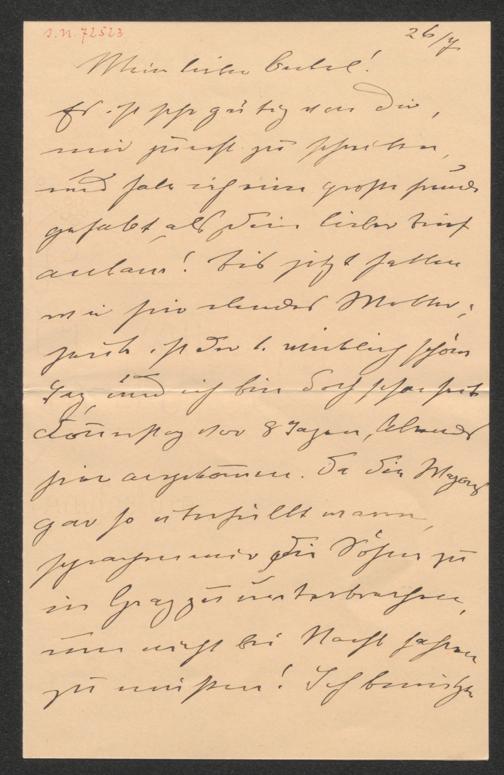 I.N. 72523
26/7
Mein lieber Onkel!
Es ist sehr gütig von Dir,
mir zuerst zu schreiben,
und habe ich eine große Freude
gehabt, als Dein lieber Brief
ankam! Bis jetzt hatten
wir hier elendes Wetter;
heute ist der 1. wirklich schöne
Tag, und ich bin doch schon seit
Donnerstag vor 8 Tagen, Abends
hier angekommen. Da die Wagen
gar so überfüllt waren,
die zu
in Graz zu unterbrechen,
um nicht bei Nacht fahren
zu müssen! Ich